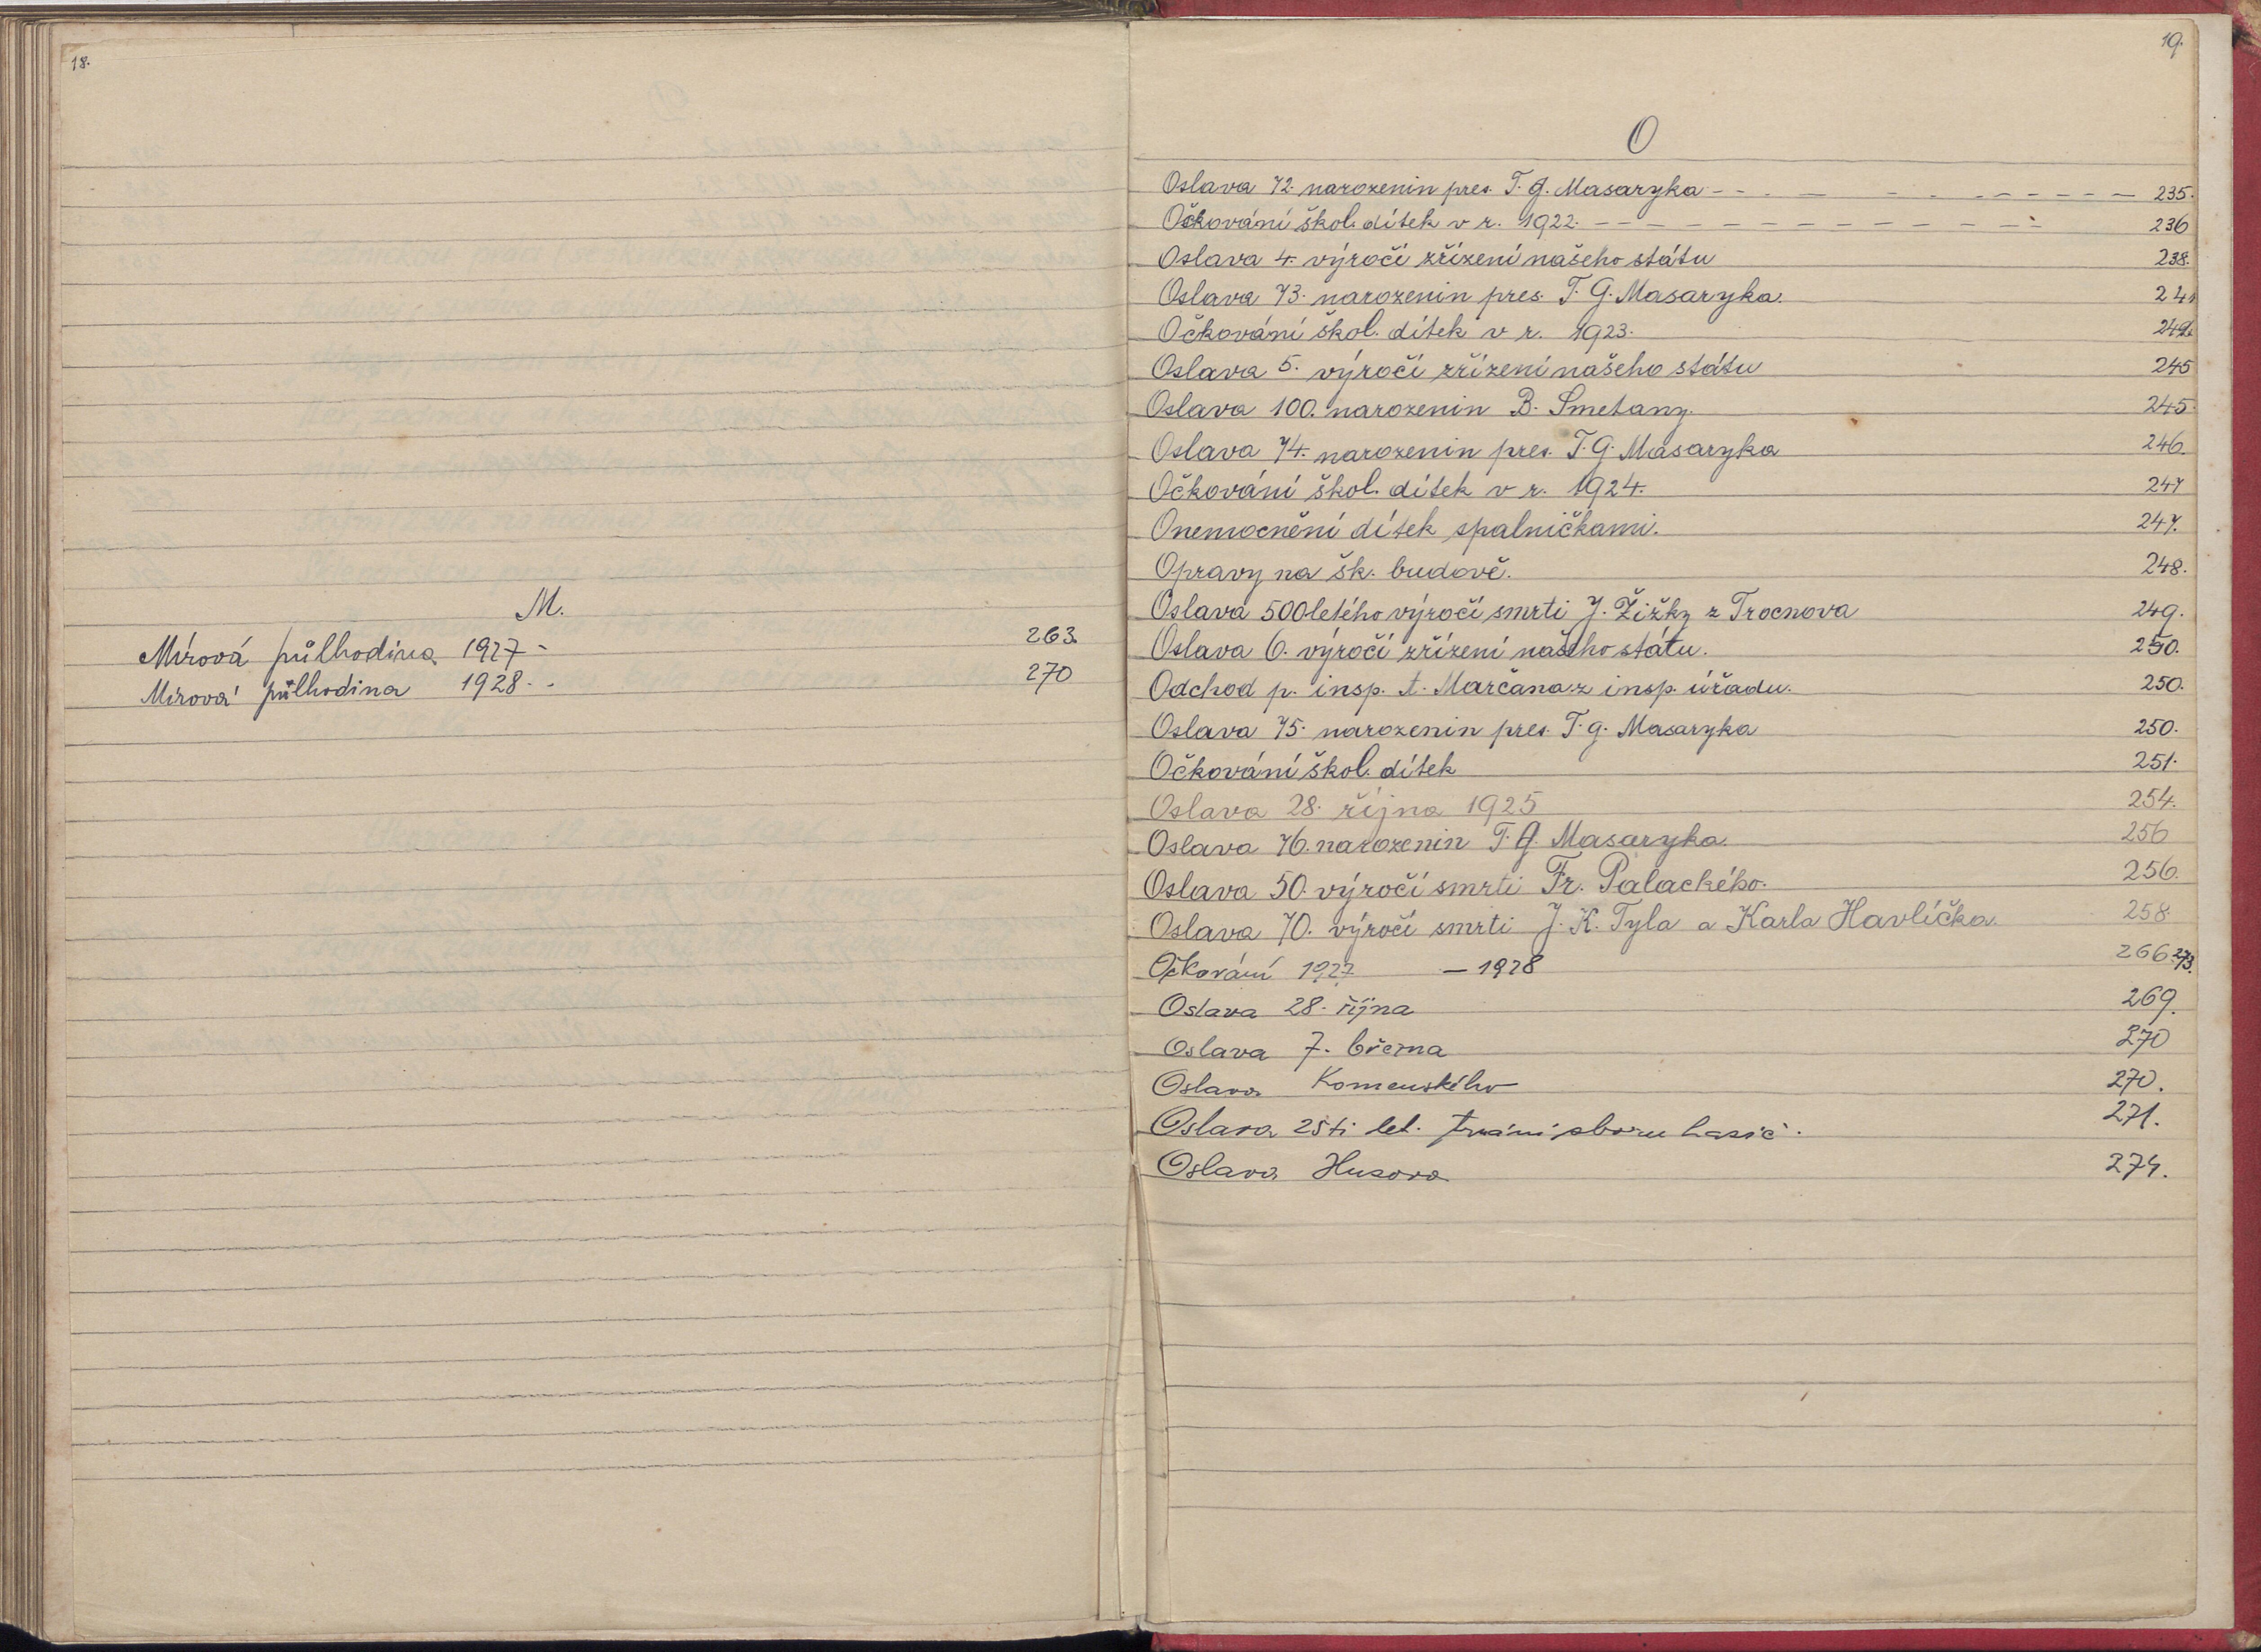 18.
M.
Mírová půlhodina 1927 - 263.
Mírová půlhodina 1928 - - 270
19.
O
Oslava 72. narozenin pres. T. G. Masaryka - - - - - - - - - - - - 235.
Očkování škol. dítek v r. 1922. - - - - - - - - - - - - - 236
Oslava 4. výročí zřízení našeho státu 238.
Oslava 73. narozenin pres. T. G. Masaryka. 241
Očkování škol. dítek v r. 1923.
Oslava 5. výročí zřízení našeho státu 245
Oslava 100. narozenin B. Smetany. 245.
Oslava 74. narozenin pres. T. G. Masaryka 246.
Očkování škol. dítek v r. 1924. 247
Onemocnění dítek spalničkami. 247.
Opravy na šk. budově. 248.
Oslava 500letého výročí smrti J. Žižky z Trocnova 249.
Oslava 6. výročí zřízení našeho státu. 250.
Odchod p. insp. A. Marčana z insp. úřadu. 250.
Oslava 75. narozenin pres. T. G. Masaryka 250.
Očkování škol. dítek 251.
Oslava 28. října 1925 254.
Oslava 76. narozenin T. G. Masaryka. 256
Oslava 50. výročí smrti Fr. Palackého. 256.
Oslava 70. výročí smrti J. K. Tyla a Karla Havlíčka. 258.
Očkování 1927 — 1928 266. 273.
Oslava 28. října 269.
Oslava 7. března 270
Oslava Komenského 270.
Oslava 25ti let. trvání sboru hasič. 271.
Oslava Husova 274.